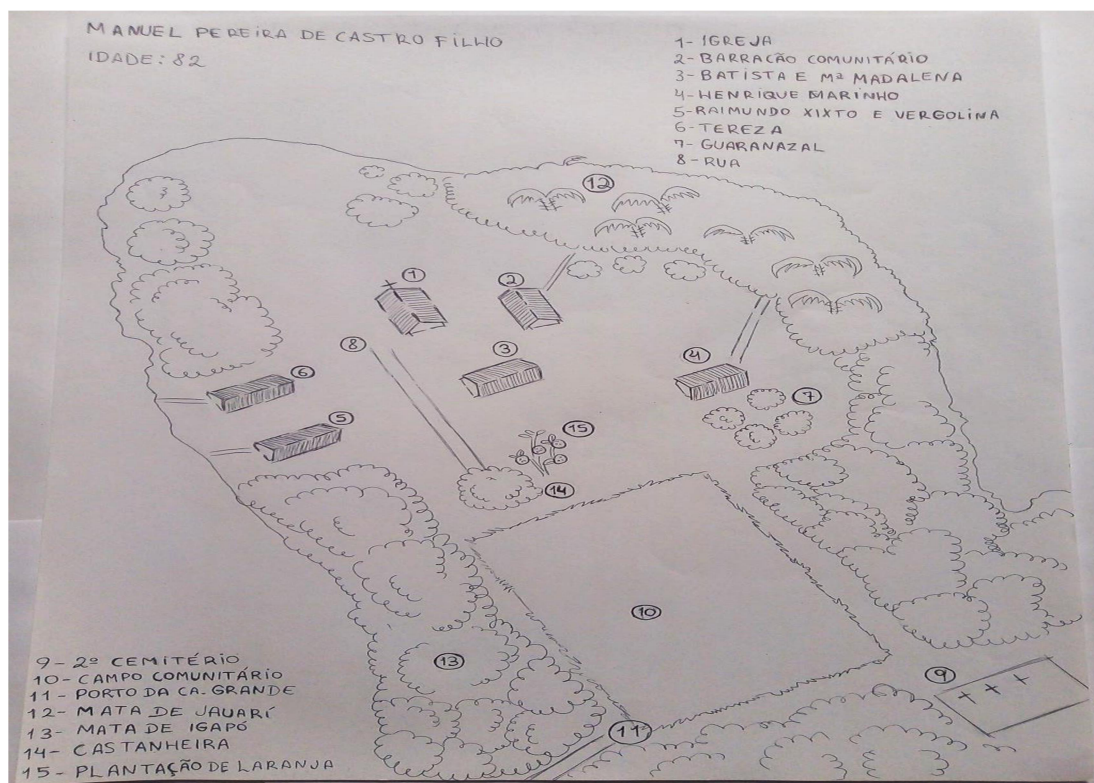 MANUEL PEREIRA DE CASTRO FILHO
IDADE: 82
1- IGREJA
2- BARRACÃO COMUNITÁRIO
3- BATISTA E Mª MADALENA
4- HENRIQUE MARINHO
5- RAIMUNDO XIXTO E VERGOLINA
6- TEREZA
7- GUARANAZAL
8- RUA
12
1
2
8
3
4
6
7
5
15
14
10
13
9
11
9- 2º CEMITÉRIO
10- CAMPO COMUNITÁRIO
11- PORTO DA CA. GRANDE
12- MATA DE JAUARÍ
13- MATA DE IGAPÓ
14- CASTANHEIRA
15- PLANTAÇÃO DE LARANJA